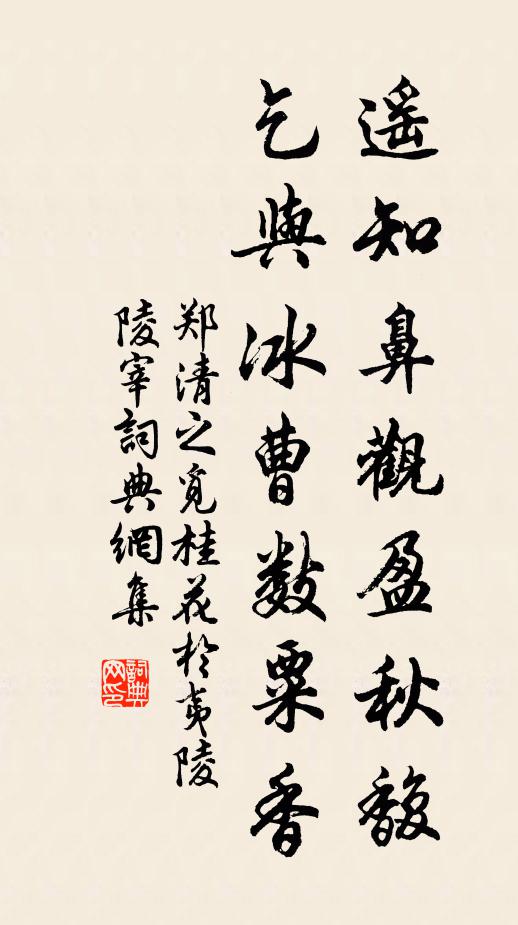 遥知鼻觀盈秋馥
乞與冰曹數粟香
郑清之觅桂花於夷陵
陵宰詞典網集
詞典网印